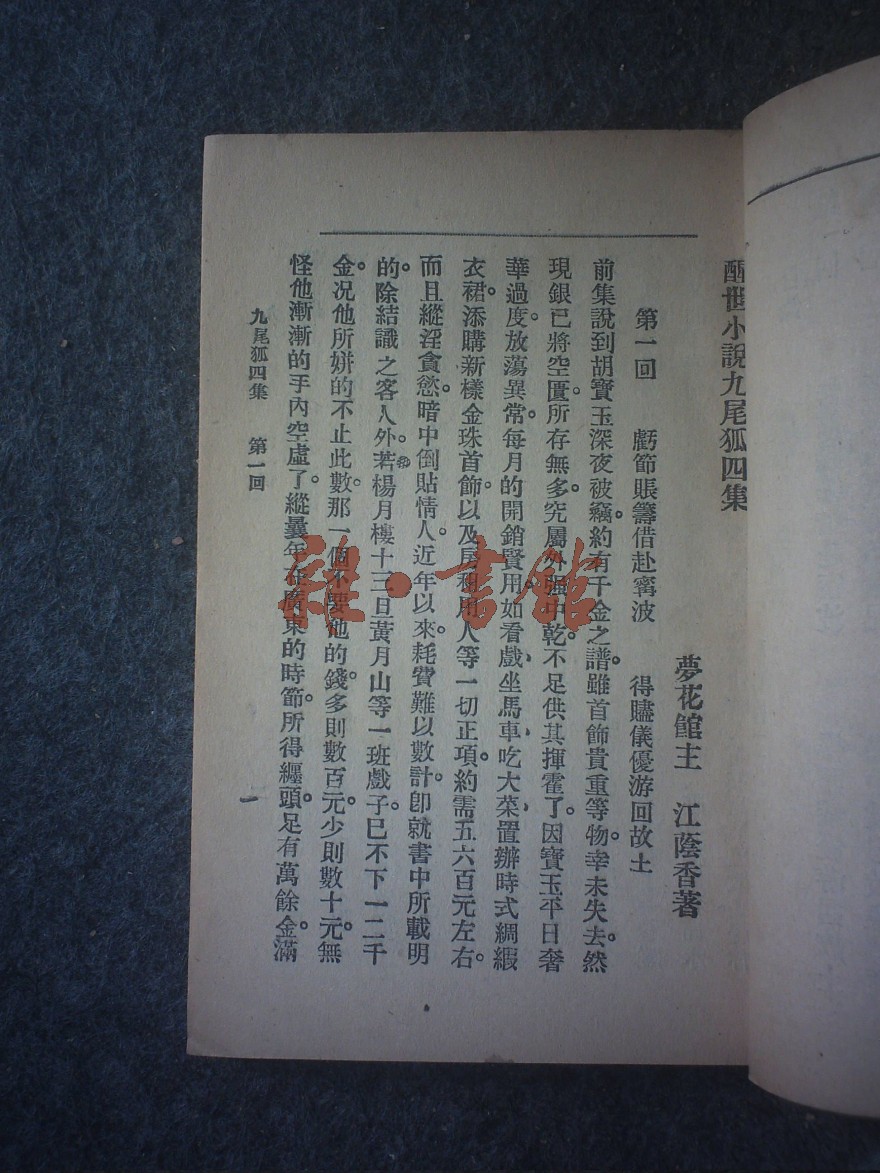 醒世小說九尾狐四集
夢花館主　江蔭香著
第一回　虧節賬籌借赴甯波　得贐儀優游回故土
前集說到胡寶玉深夜被竊。約有千金之譜。雖首飾貴重等物。幸未失去。然
現銀已將空匱。所存無多。究屬外强中乾。不足供其揮霍了。因寶玉平日奢
華過度。放蕩異常。每月的開銷賢用。如看戲、坐馬車、吃大菜、置辦時式綢緞
衣裙。添購新樣金珠首飾。以及房租用人等一切正項。約需五六百元左右。
而且縱淫貪慾。暗中倒貼情人。近年以來。耗費難以數計。卽就書中所載明
的。除結識之客人外。若楊月樓十三旦黃月山等一班戲子。已不下一二千
金。况他所姘的不止此數。那一個不要他的錢。多則數百元。少則數十元。無
怪他漸漸的手內空虛了。縱曩年在廣東的時節。所得纏頭。足有萬餘金。滿
九尾狐四集　第一回
一
雜·書館